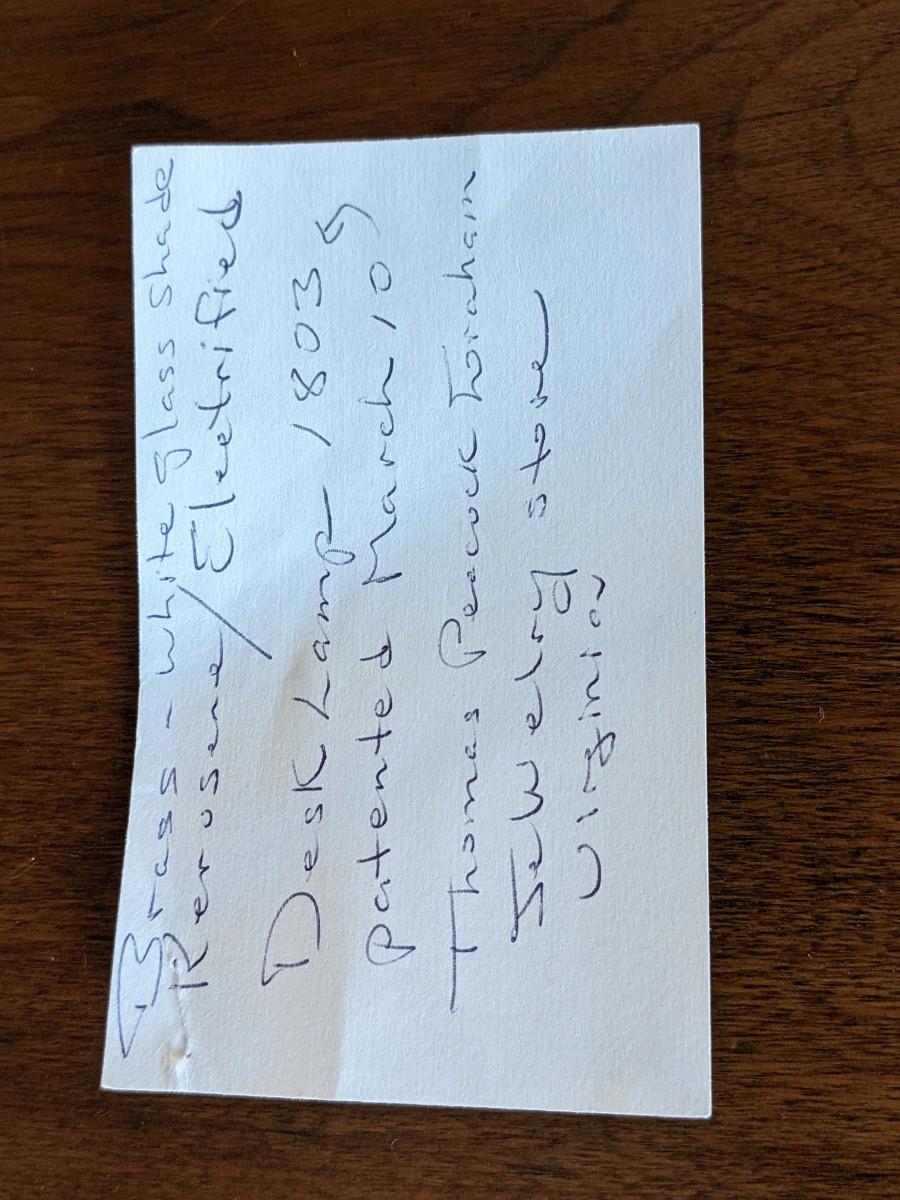 Brass - white glass shade
Kerosene/Electrified
Desk Lamp 1803
Patented March 10 9
Thomas Peacock
Jewelry store
Virginia